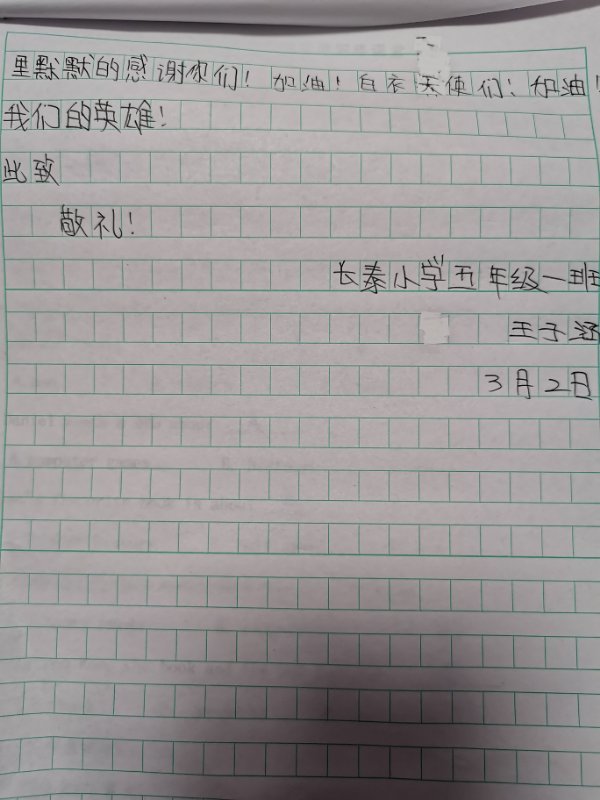 里默默的感谢你们！加油！白衣天使们！加油！
我们的英雄！
此致
敬礼！
长泰小学五年级一班
王子涵
3月2日